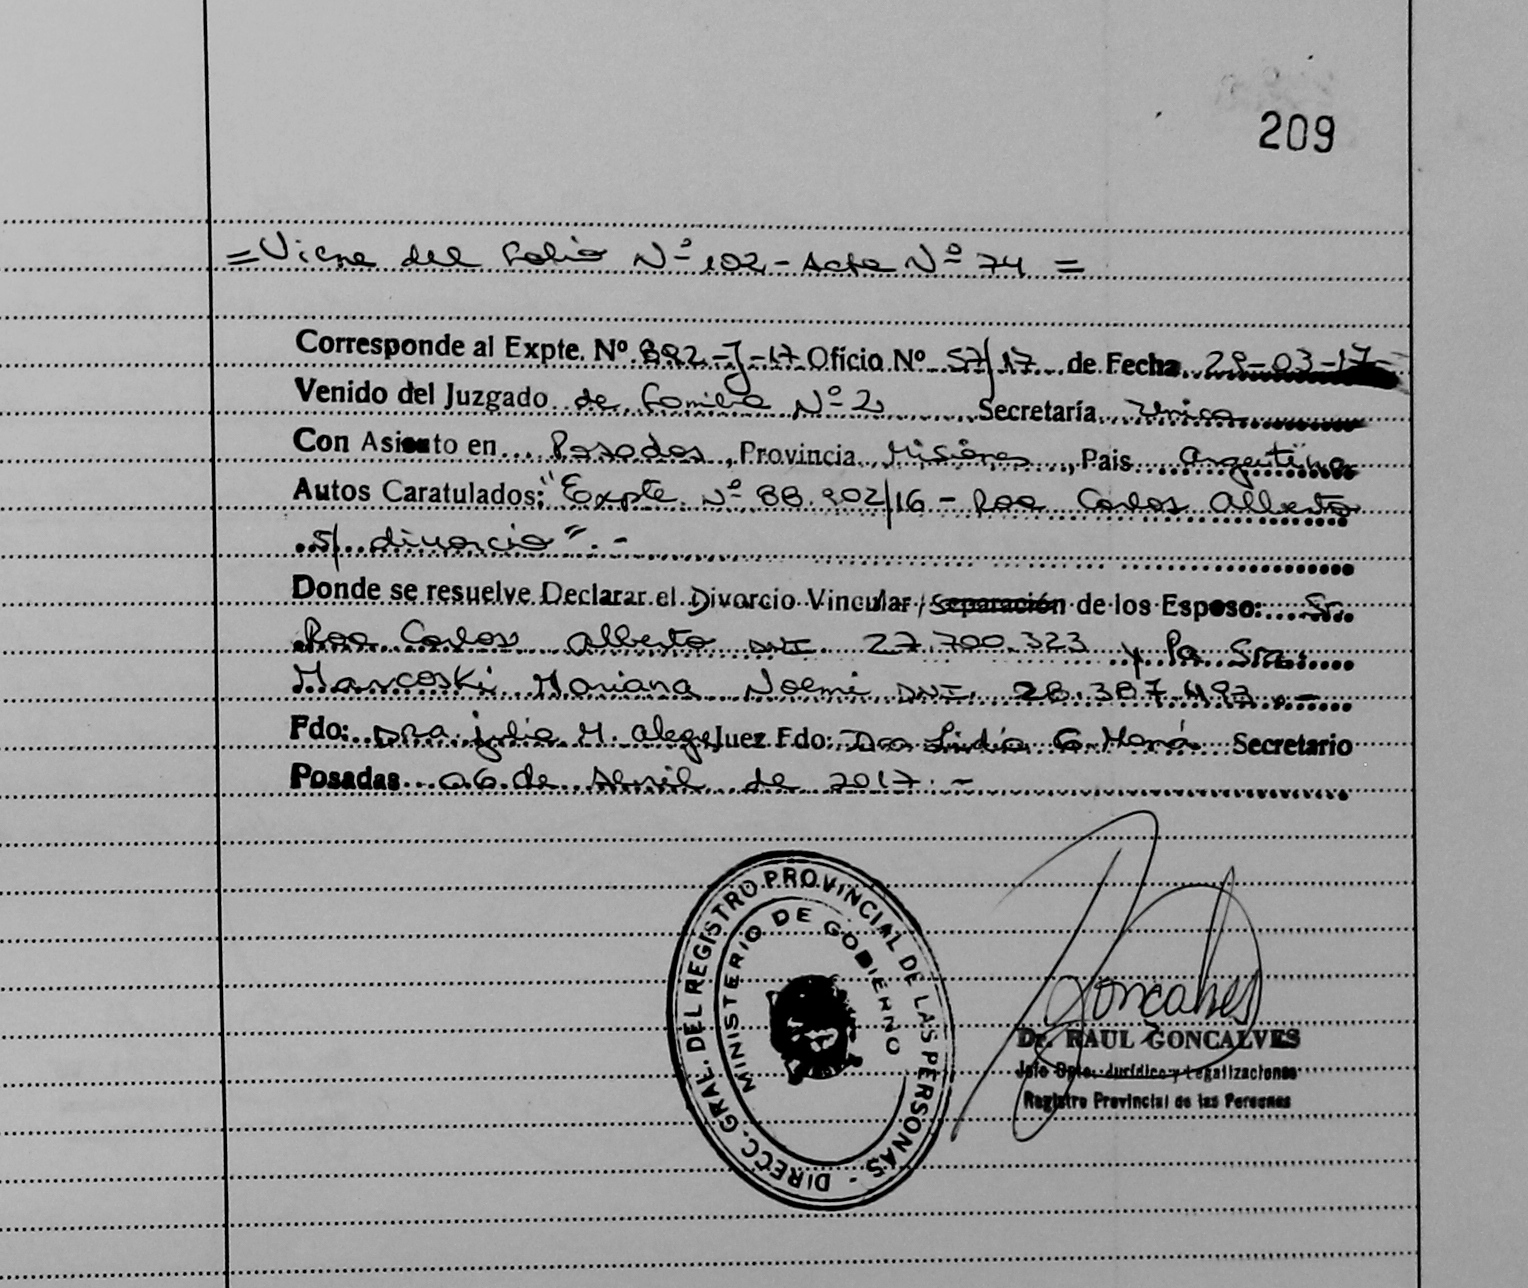 209
=Viene del Folio Nº 102 - Acta Nº 74 =
Corresponde al Expte. Nº 892-J-17 Oficio Nº 57/17 de Fecha 29-03-17
Venido del Juzgado de Familia Nº 2 Secretaría Unica
Con Asiento en Posadas, Provincia Misiones, Pais Argentina
Autos Caratulados: "Expte. Nº 88.902/16 - Roa Carlos Alberto
s/ divorcio".-
Donde se resuelve Declarar el Divorcio Vincular / Separación de los Esposo: Sr.
Roa Carlos Alberto DNI 27.700.323 y la Sra.
Marcoski Mariana Noemi DNI. 28.387.493.-
Fdo: Dra. Julia M. Alegre Juez Fdo: Dra Lidia G. Secretario
Posadas 06 de Abril de 2017.-
DIRECC. GRAL. DEL REGISTRO PROVINCIAL DE LAS PERSONAS -
MINISTERIO DE GOBIERNO
Goncalves
Dr. RAUL GONCALVES
Jefe Dpto. Jurídico y Legalizaciones
Registro Provincial de las Personas